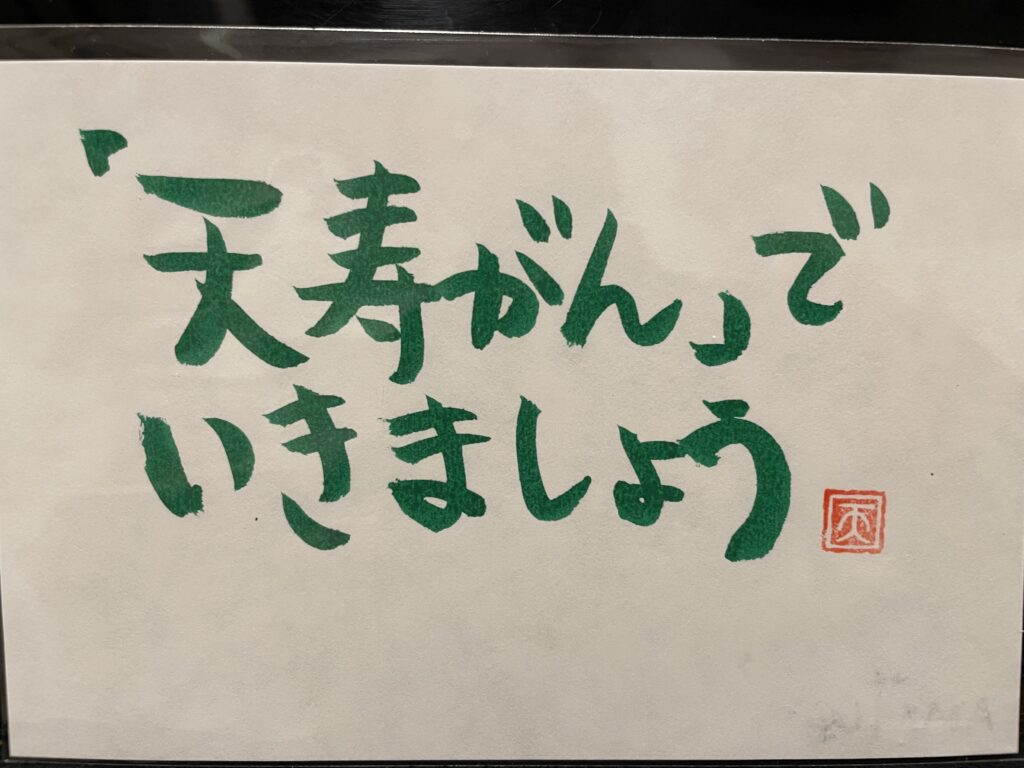 「天寿がん」で
いきましょう
天